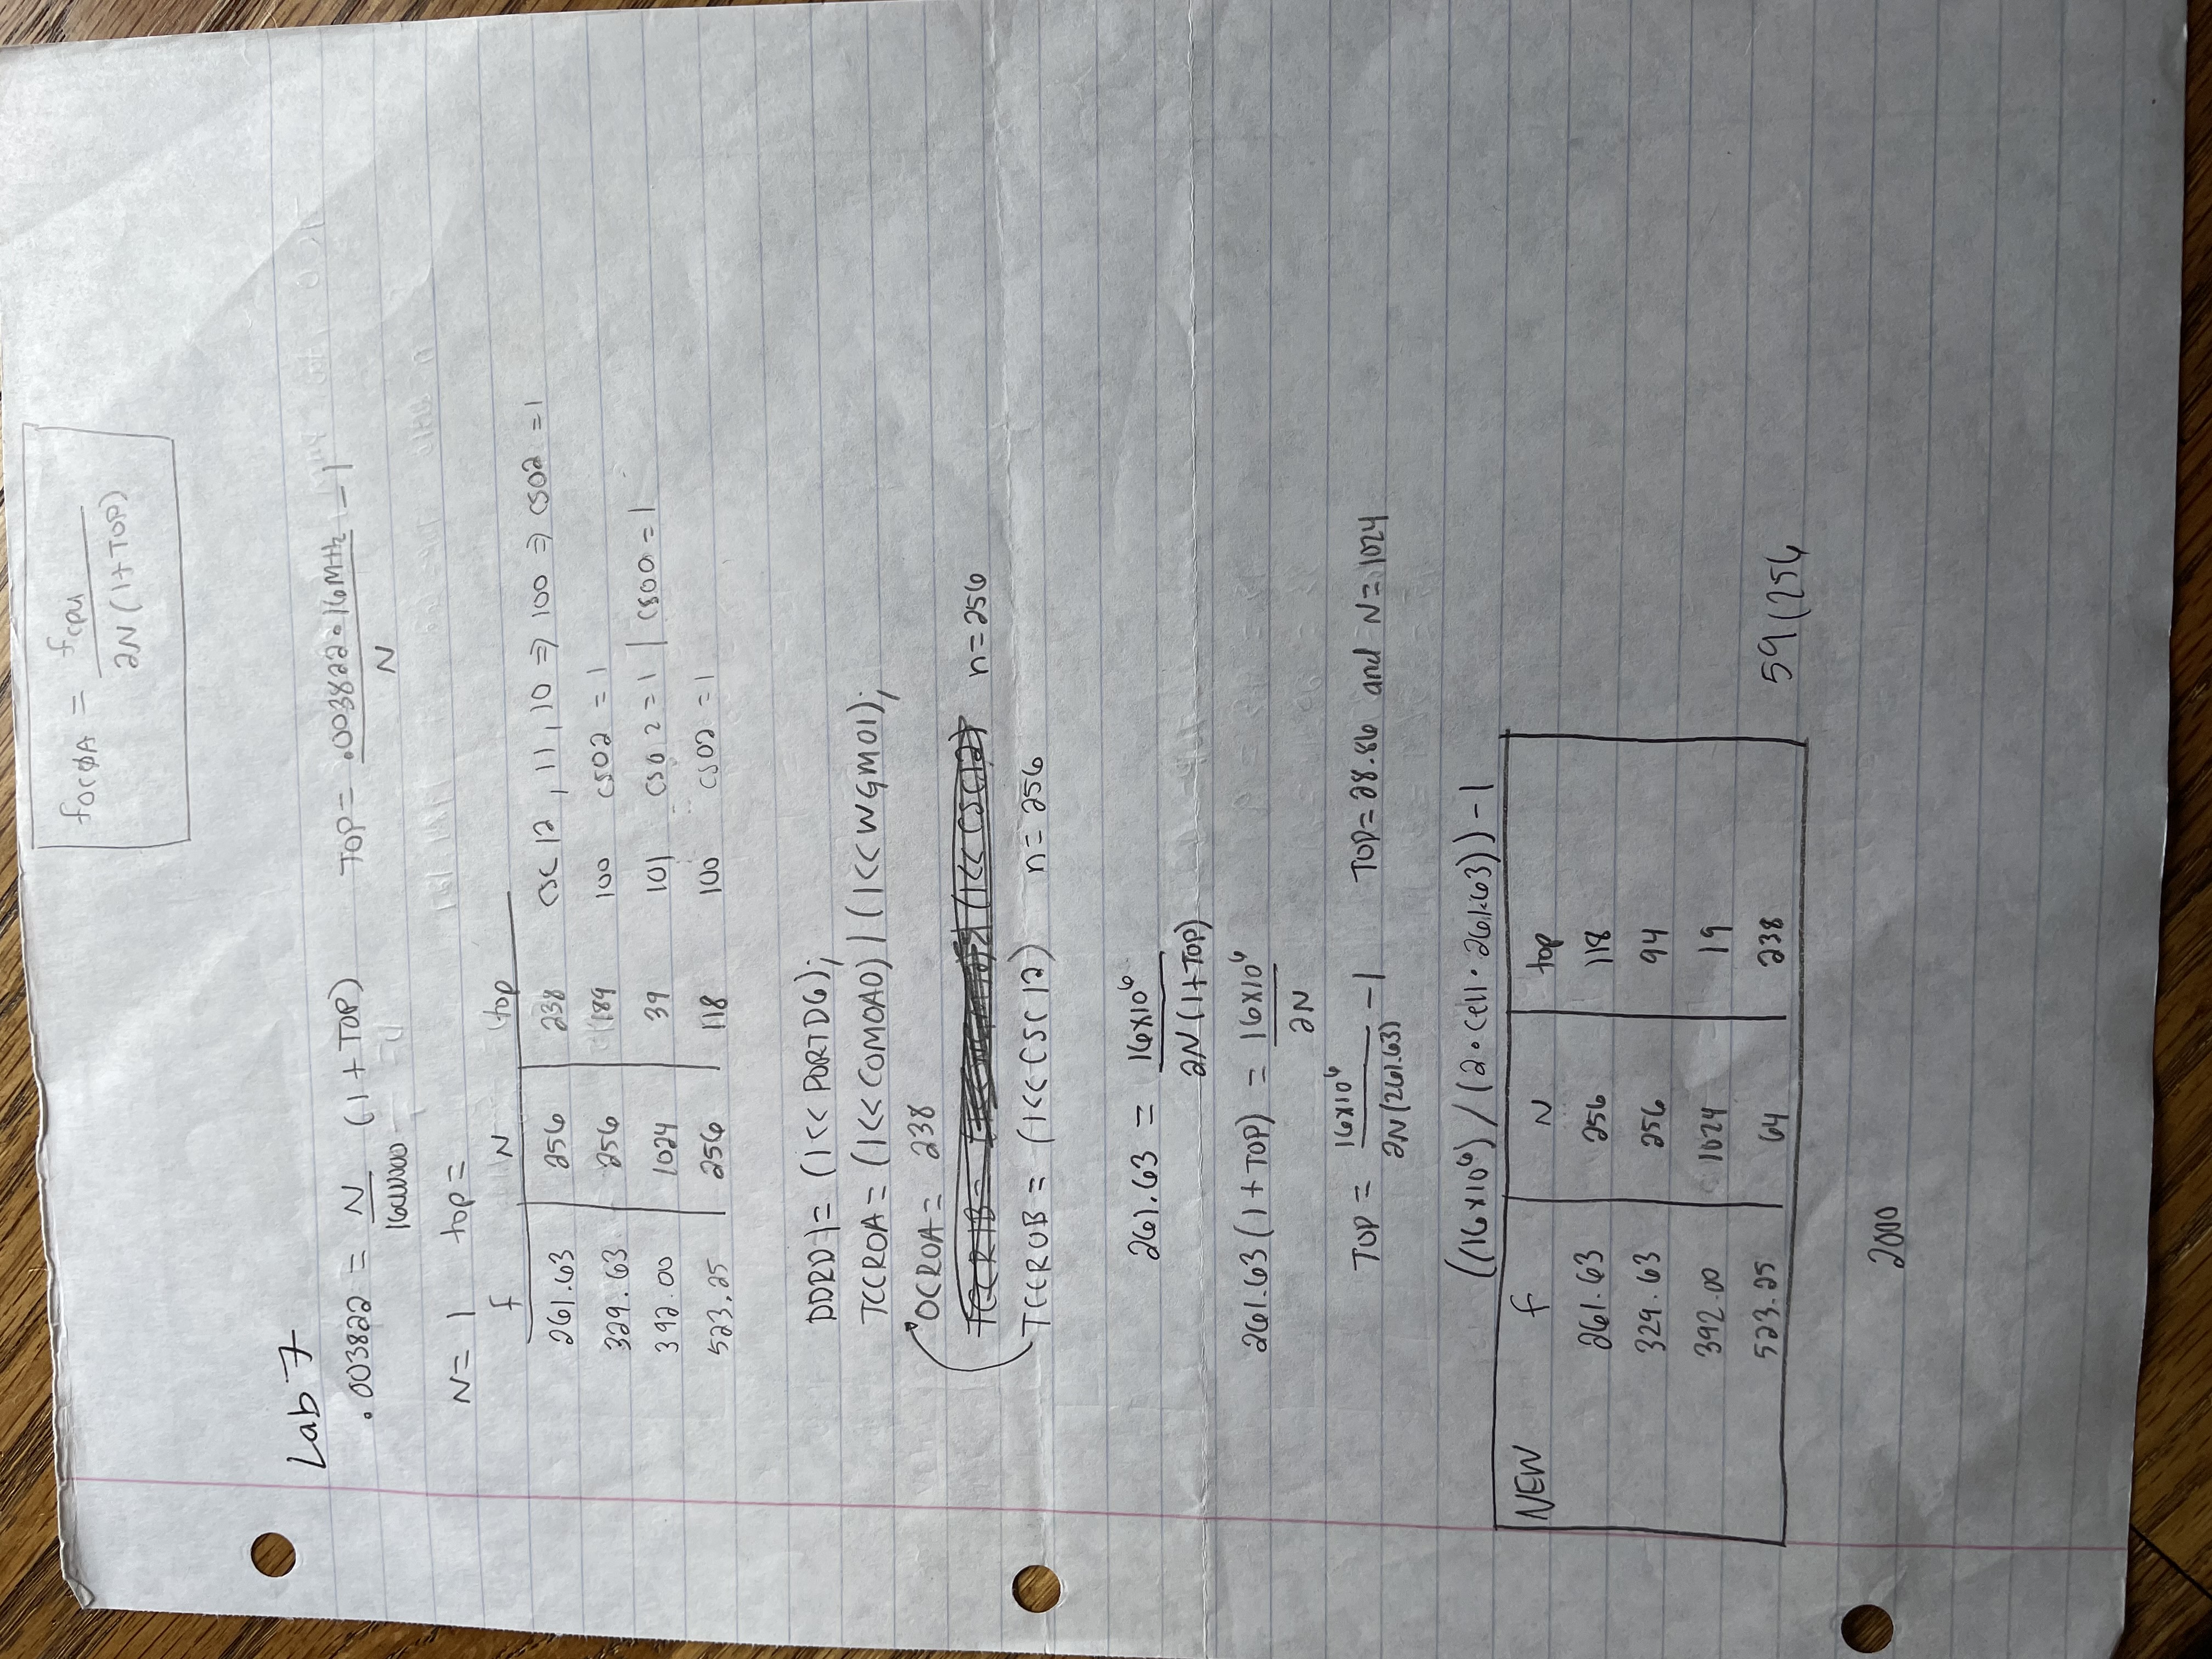 fOCØA = fcpu / 2N(1+TOP)
Lab 7
.003822 = N / 16000000 (1 + TOP)    TOP = .003822 • 16MHz / N - 1
N = 1    top =
f    N    top
261.63    256    238    CSC 12, 11, 10 => 100 => CS02 = 1
329.63    256    189    100    CS02 = 1
392.00    1024    39    101    CS02 = 1 | CS00 = 1
523.25    256    118    100    CS02 = 1
DDRD |= (1<< PORTD6);
TCCR0A = (1<< COM0A0) | (1<< WGM01);
OCR0A = 238
n = 256
TCCR0B = (1<< CSC12)    n = 256
261.63 = 16x10⁶ / 2N(1+TOP)
261.63 (1 + TOP) = 16x10⁶ / 2N
TOP = 16x10⁶ / 2N(261.63) - 1    TOP = 28.86 and N = 1024
((16x10⁶) / (2 • cell • 261.63)) - 1
NEW    f    N    top
261.63    256    118
329.63    256    94
392.00    1024    19
523.25    64    238    59(256
2000